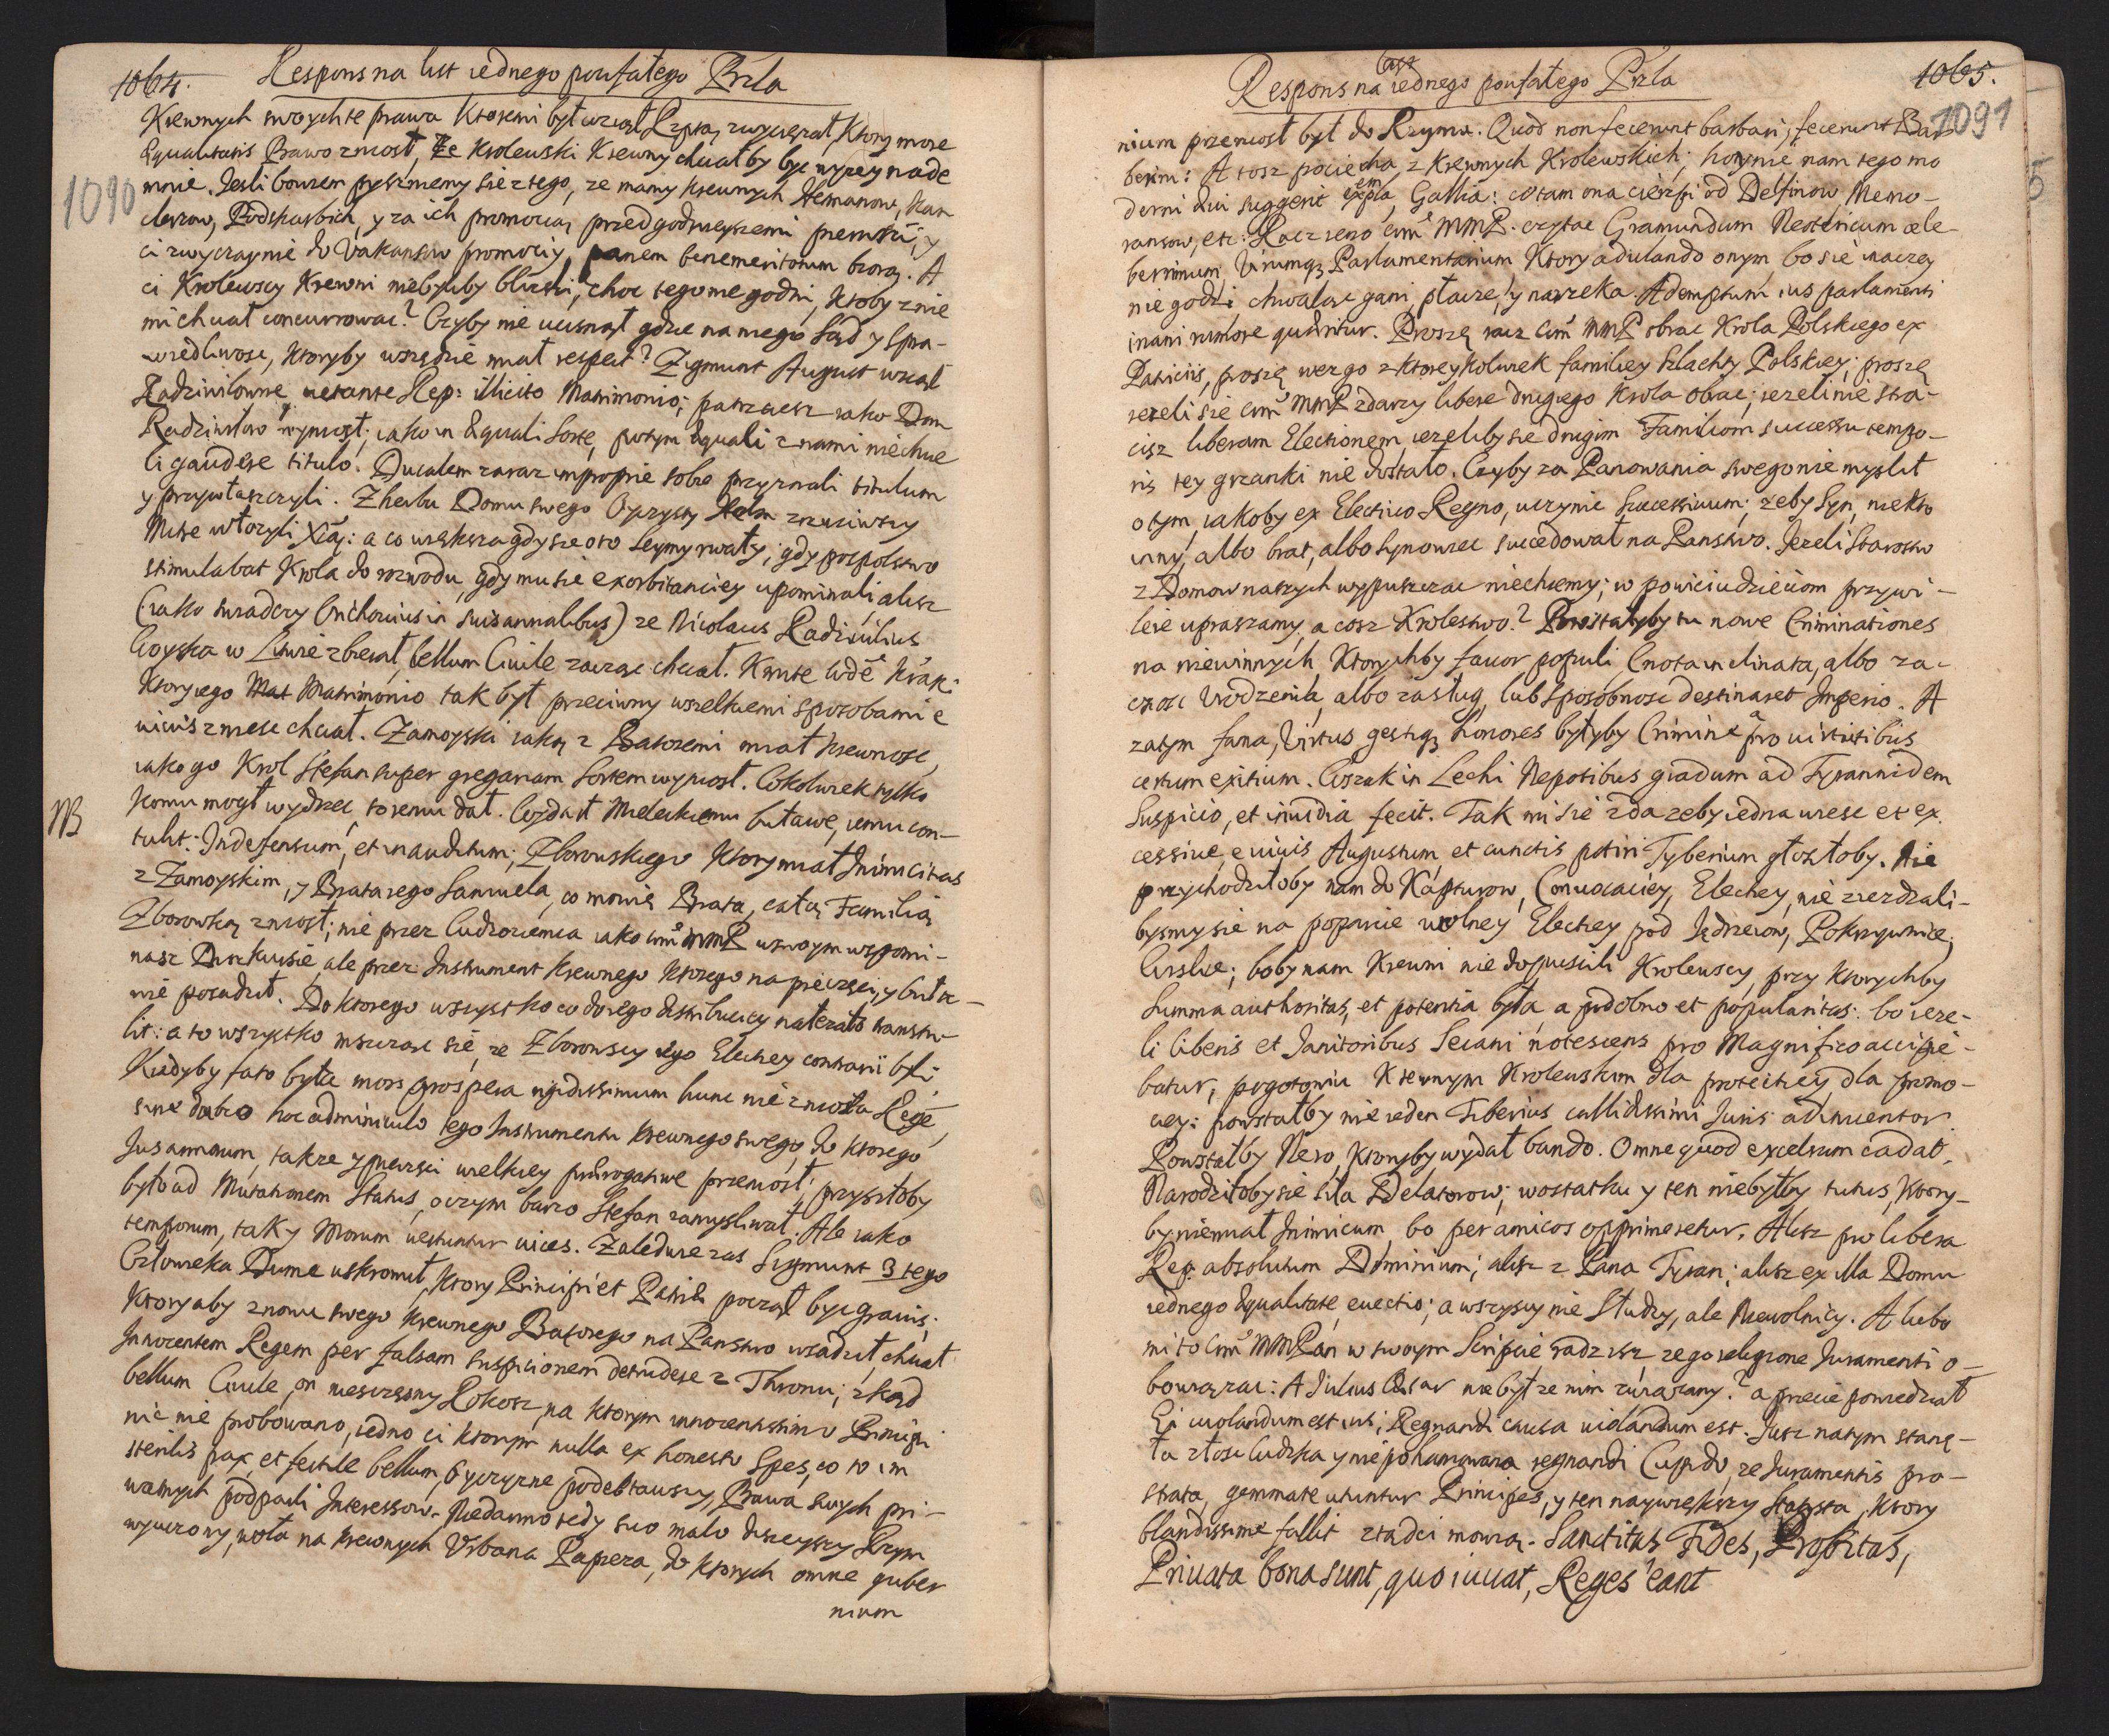 1064. Respons na list iednego poufałego Przla
Krewnych swoych te prawa Ktoremi był wziął Rzptą, zwyciężał, Ktory more
Æqualitatis Prawo zniosł, Ze Krolewski Krewny chciałby byc wyzey nade
mnie. Jesli bowiem pyszniemy sie z tego, ze mamy Krewnych Hetmanow, Kan
1090
clerzow, Podskarbich, y za ich promocią przed godnieyszemi pierwsi, y
ci zwyczaynie do Vakansow promociy, panem benemeritorum biorą. A
ci Krolewscy Krewni niebyliby bliszsi, choc tego nie godni, Ktoby z nie
mi chciał concurrowac? Czyby nie ucisnął gdzie na niego Sąd y Spra-
wiedliwosc, Ktoryby wszędzie miał respect? Zigmunt August wziął
Radziwiłowne vetante Rep: illicito Matrimonio; patrzaysz iako Dom
Radziwiłow wyniosł; iako in Æquali sorte, potym Æquali z nami niechcie
li gaudere titulo. Ducalem zaraz improprie sobie przyznali titulum
y przywłaszczyli. Z herbu Domu swego Oyczysty Helm zrzuciwszy
Mitre włozyli Xcą: a co większa gdy sie o to Seymy rwały; gdy pospolstwo
stimulabat Krola do rozwodu, gdy mu sie exorbitanciey upominali, alisz
(iako swiadczy Orichovius in suis annalibus) ze Nicolaus Radivilius
Woyska w Litwie zbierał, bellum Civile zacząc chciał. Kmite Wdē Krak:
Ktory iego Mat Matrimonio tak był przeciwny wszelkiemi sposobami e
vivis zniesc chciał. Zamoyski iaką z Batoremi miał Krewnosc,
iako go Krol Stefan super gregariam Sortem wyniosł. Cokolwiek tylko
NB
komu mogł wydrzec, to iemu dał. Wydarł Mieleckiemu buławe, iemu con-
tulit. Indefensum, et inauditum; Zborowskiego Ktory miał Inimicitias
z Zamoyskim, y Brata iego Samuela, co mowię Brata, całą Familią
Zborowską zniosł; nie przez Cudzoziemca iako Wmē MMP w swoym wspomi-
nasz Diskursie, ale przez Instrument Krewnego Ktorego na pieczęci, y buła-
wie posadził. Do ktorego wszystko co do iego distribuciey należało transtu-
lit: a to wszystko mszcząc się, ze Zborowscy iego Elekciey contrarii byli.
Kiedyby fato była mors prospera rigidissimum hunc nie zniosła Regē,
sine dubio hoc adminiculo tego Instrumentu Krewnego swego, do ktorego
Jus armorum, takze y pieczęci wielkiey prærogatiwe przeniosł, przyszłoby
było ad Mutationem Status, o czym barzo Stefan zamysliwał. Ale iako
temporum, tak y Morum vertuntur vices. Zaledwie zas Sigmunt 3 tego
Człowieka Dume uskromił, ktory Principi et Patriæ począł byc gravis;
Ktory aby znowu swego Krewnego Batorego na Panstwo wsadził, chciał
Innocentem Regem per falsam suspicionem detrudere z Thronu; zkąd
bellum Civile, on nieszczęsny Rokosz, na ktorym innocentissimo Principi
nic nie probowano, iedno ci ktorym nulla ex honesto Spes, co to im
sterilis pax, et fertile bellum, Oyczyzne podeptawszy, Prawa swych pri-
watnych podparli Interessow. Niedawno tedy suo malo dzieyszy Rzym
wyuczony, woła na krewnych Urbana Papieza, do ktorych omne guber
nium
Respons na list iednego poufałego Przla
1065.
1091
nium przeniosł był do Rzymu. Quod non fecerunt barbari, fecerunt Bar
berini: A tosz pociecha z Krewnych Krolewskich; hoynie nam tego mo
derni ævi suggerit exempla Gallia: co tam ona cierpi od Delfinow, Memo-
ransow, etc: Racz ieno Wmē MMP. czytac Gramundum Nestericum cele
berrimum Virumq; Parlamentarium Ktory adulando onym, bo sie inaczey
nie godzi, chwaląc gani, płacze, y narzeka. Ademptum ius parlamenti
inani rumore quæritur. Proszę racz Wmē MMP obrac Krola Polskiego ex
Patriciis, proszę wez go z ktoreykolwiek familiey Szlachty Polskiey; proszę
iezeli sie Wmē MMP zdarzy libere drugiego Krola obrac; iezeli nie stra-
cisz liberam Electionem, iezeliby sie drugim Familiom successu tempo-
ris tey grzanki nie dostało. Czyby za Panowania swego nie myslił
o tym, iakoby ex Electivo Regno, uczynic Successivum; zeby Syn, niekto
inny, albo brat, albo Synowiec succedował na Panstwo. Jezeli Starostw
z Domow naszych wypuszczac niechcemy; w powiciu dzieciom przywi-
leie upraszamy, a cosz Krolestwo? Powstałyby tu nowe Criminationes
na niewinnych, Ktorychby favor populi Cnota inclinata, albo za-
cnosc Urodzenia, albo zasług, lub sposobnosc destinaret Imperio. A
zatym fama, Virtus, gestiq; honores byłyby Crimine, a pro virtutibus
certum exitium. Wszak in Lechi Nepotibus gradum ad Tyrannidem
Suspicio, et invidia fecit. Tak mi sie zda zeby iedna wiesc et ex
cessive e vivis Augustum et cunctis potiri Tyberium głosiłoby. Nie
przychodziłoby nam do Kapturow, Convocaciey, Elekciey, nie ziezdzali-
bysmy sie na poparcie wolney Elekciey pod Jędrzeiow, Pokrzywnice,
Wislice; boby nam Krewni nie dopuscili Krolewscy, przy ktorychby
Summa authoritas, et potentia była, a podobno et popularitas: bo ieze-
li liberis et Janitoribus Seiani notescens pro Magnifico accipie-
batur, pogotowiu Krewnym Krolewskim dla protekciey, dla promo-
ciey: powstałby nie ieden Tiberius callidissimi Juris adinventor.
Powstałby Nero, Ktoryby wydał bando. Omne quod excelsum cadat.
Narodziłoby sie siła Delatorow; wostatku y ten niebyłby tutus, Ktory-
by niemiał Inimicum, bo per amicos opprimeretur. Alisz pro libera
Rep: absolutum Dominium; alisz z Pana Tyran; alisz ex illa Domu
iednego Æqualitate, evectio; a wszyscy nie Słudzy, ale Niewolnicy. A lubo
mi to Wmē MMPan w swoym Scripcie radzisz, zego religione Juramenti o-
bowiązac: A Julius Cæsar nie był ze nim związany? a przecie powiedział
Si violandum est ius, Regnandi causa violandum est. Jusz na tym stanę-
ła złosc ludzka y niepohamowana regnandi Cupido, ze Juramentis pro-
strata, gemmate utuntur Principes, y ten naywiększy Statysta, ktory
blandissime fallit zradci mowią. Sanctitas, Fides, Probitas,
Privata bona sunt, quo iuvat, Reges eant